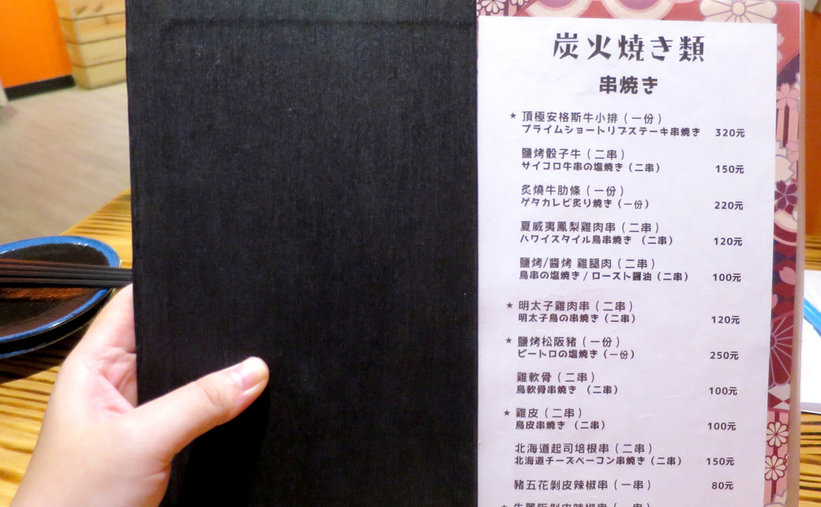 炭火焼き類
串焼き
★ 頂極安格斯牛小排（一份）
プライムショートリブステーキ串焼き 320元
鹽烤骰子牛（二串）
サイコロ牛串の塩焼き（二串） 150元
炙燒牛肋條（一份）
ゲタカレビ炙り焼き（一份） 220元
夏威夷鳳梨雞肉串（二串）
ハワイスタイル鳥串焼き （二串） 120元
鹽烤/醬烤 雞腿肉（二串）
鳥串の塩焼き / ロースト醤油（二串） 100元
★ 明太子雞肉串（二串）
明太子鳥の串焼き（二串） 120元
★ 鹽烤松阪豬（一份）
ピートロの塩焼き（一份） 250元
雞軟骨（二串）
鳥軟骨串焼き （二串） 100元
★ 雞皮（二串）
鳥皮串焼き （二串） 100元
北海道起司培根串（二串）
北海道チーズベーコン串焼き（二串） 150元
豬五花剝皮辣椒串（一串） 80元